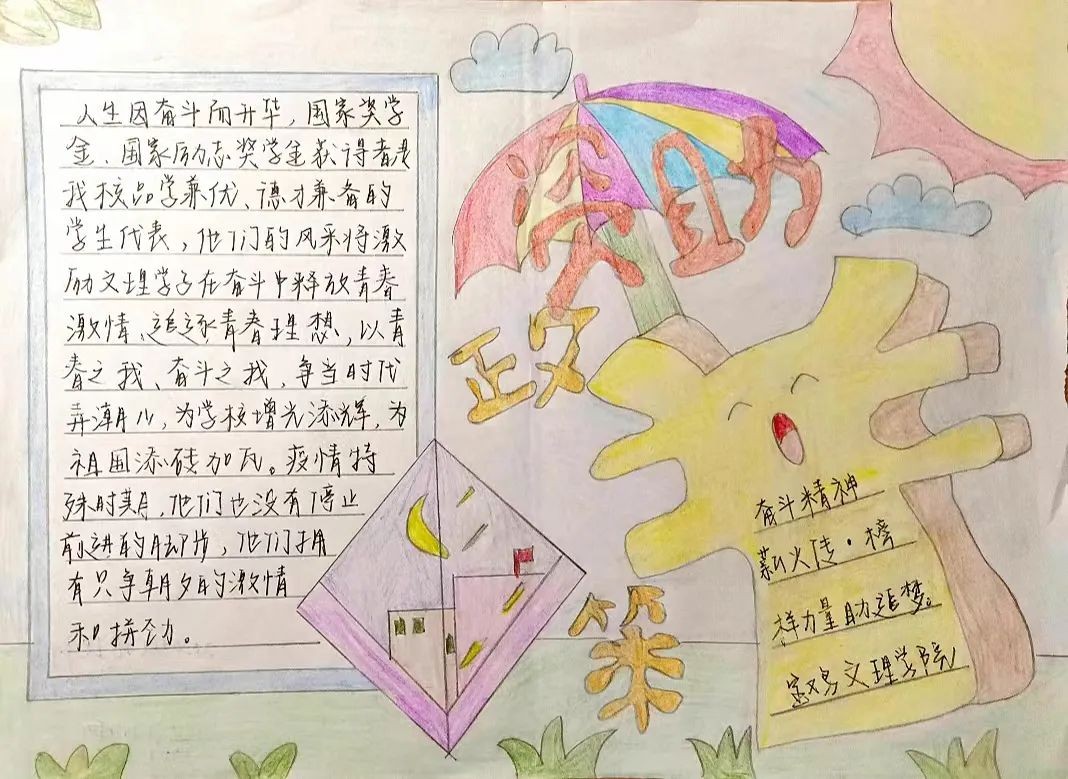 资助
政
策
人生因奋斗而升华，国家奖学
金、国家励志奖学金获得者是
我校品学兼优、德才兼备的
学生代表，他们的风采将激
励文理学子在奋斗中释放青春
激情、追逐青春理想，以青
春之我、奋斗之我，争当时代
弄潮儿，为学校增光添辉，为
祖国添砖加瓦。疫情特
殊时期，他们也没有停止
前进的脚步，他们拥
有只争朝夕的激情
和拼劲。
奋斗精神
薪火传·榜
样力量助追梦。
宝鸡文理学院